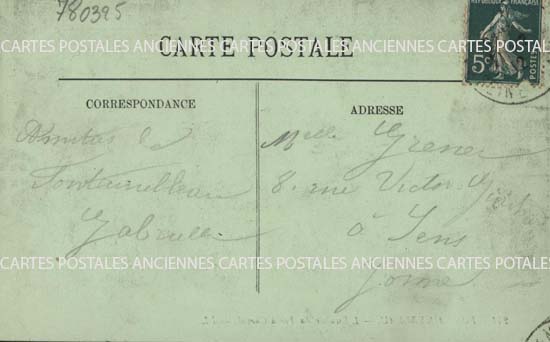 780395
RÉPUBLIQUE FRANÇAISE
5c POSTES
CARTES POSTALES ANCIENNES CARTES POSTALES ANCIENNES CARTES POSTALES ANCIENNES
CARTE POSTALE
CORRESPONDANCE
ADRESSE
Amitiés de
Fontainebleau
Gabrielle
Melle Grener
8. rue Victor
à Sens
Yonne
CARTES POSTALES ANCIENNES CARTES POSTALES ANCIENNES CARTES POSTALES ANCIENNES